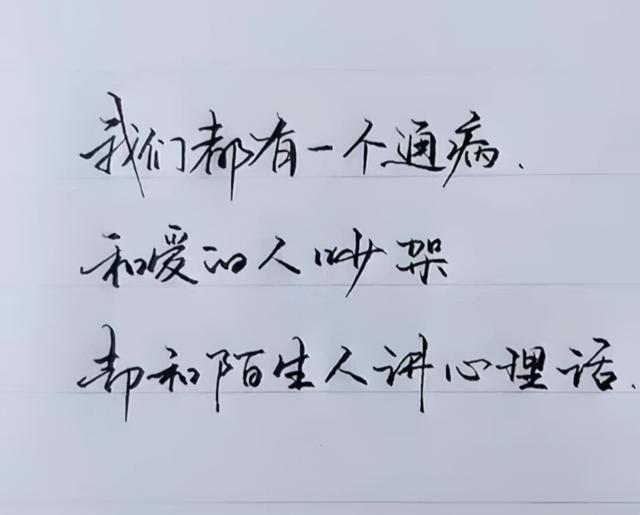 我们都有一个通病.
和爱的人吵架
却和陌生人讲心理话.